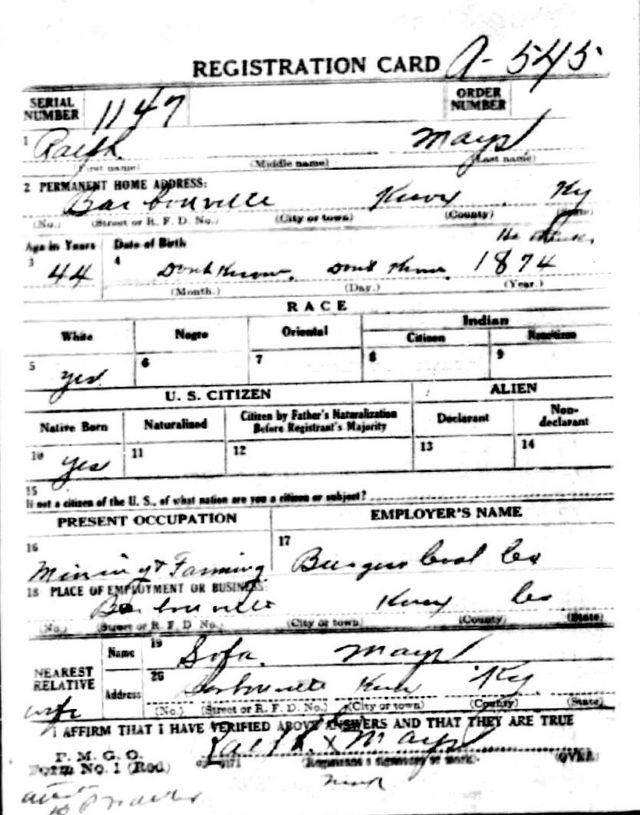 REGISTRATION CARD A-545
SERIAL NUMBER 1147 ORDER NUMBER
1 Ralph Mays
(First name) (Middle name) (Last name)
2 PERMANENT HOME ADDRESS:
Barbourville Knox Ky
(No.) (Street or R. F. D. No.) (City or town) (County) (State)
Age in Years Date of Birth He thinks
3 44 4 Dont Know. Dont Know. 1874
(Month.) (Day.) (Year.)
RACE
White Negro Oriental Indian
Citizen Noncitizen
5 yes 6 7 8 9
U. S. CITIZEN ALIEN
Native Born Naturalized Citizen by Father's Naturalization Before Registrant's Majority Declarant Non-declarant
10 yes 11 12 13 14
15
If not a citizen of the U. S., of what nation are you a citizen or subject?
PRESENT OCCUPATION EMPLOYER'S NAME
16 Mining & Farming 17 Coal Co
18 PLACE OF EMPLOYMENT OR BUSINESS:
Barbourville Knox Co
(No.) (Street or R. F. D. No.) (City or town) (County) (State)
NEAREST RELATIVE Name 19 Sofa Mays
wife Address 20 Barbourville Knox Ky.
(No.) (Street or R. F. D. No.) (City or town) (County) (State)
I AFFIRM THAT I HAVE VERIFIED ABOVE ANSWERS AND THAT THEY ARE TRUE
P. M. G. O.
Form No. 1 (Red) Ralph x Mays
(Registrant's signature or mark) (OVER)